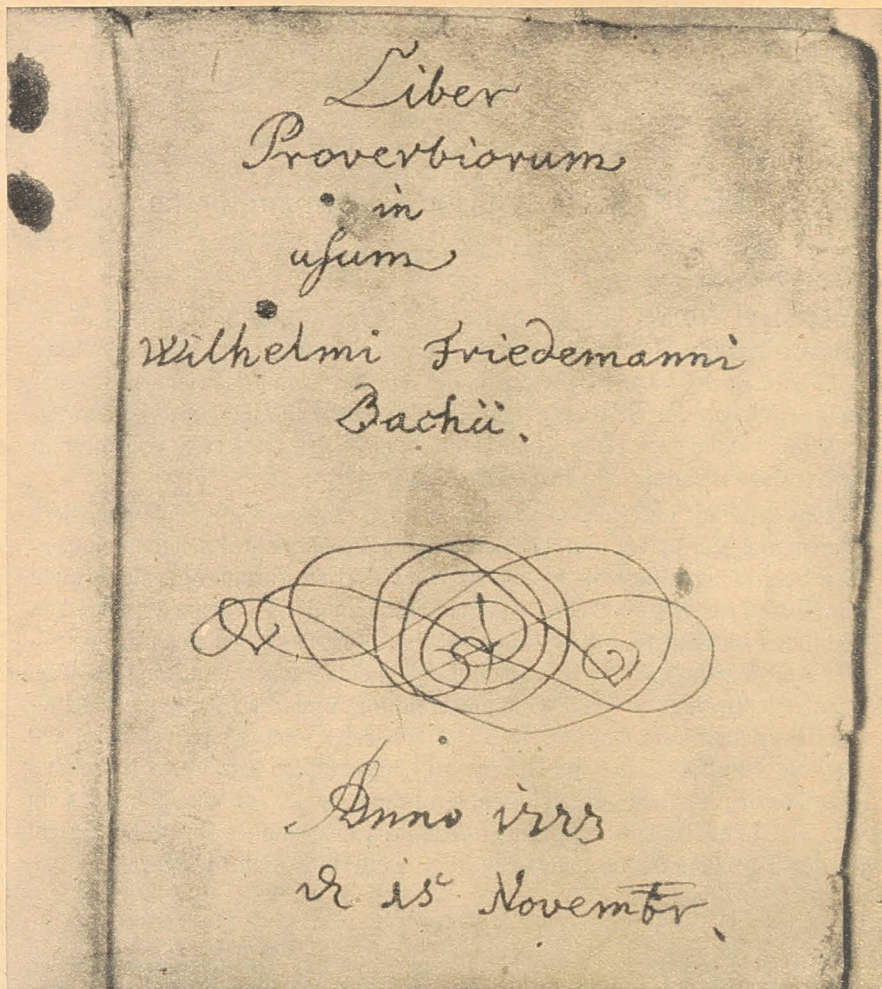 Liber
Proverbiorum
in
usum
Wilhelmi Friedemanni
Bachii.
Anno 1723
d 15 Novembr.